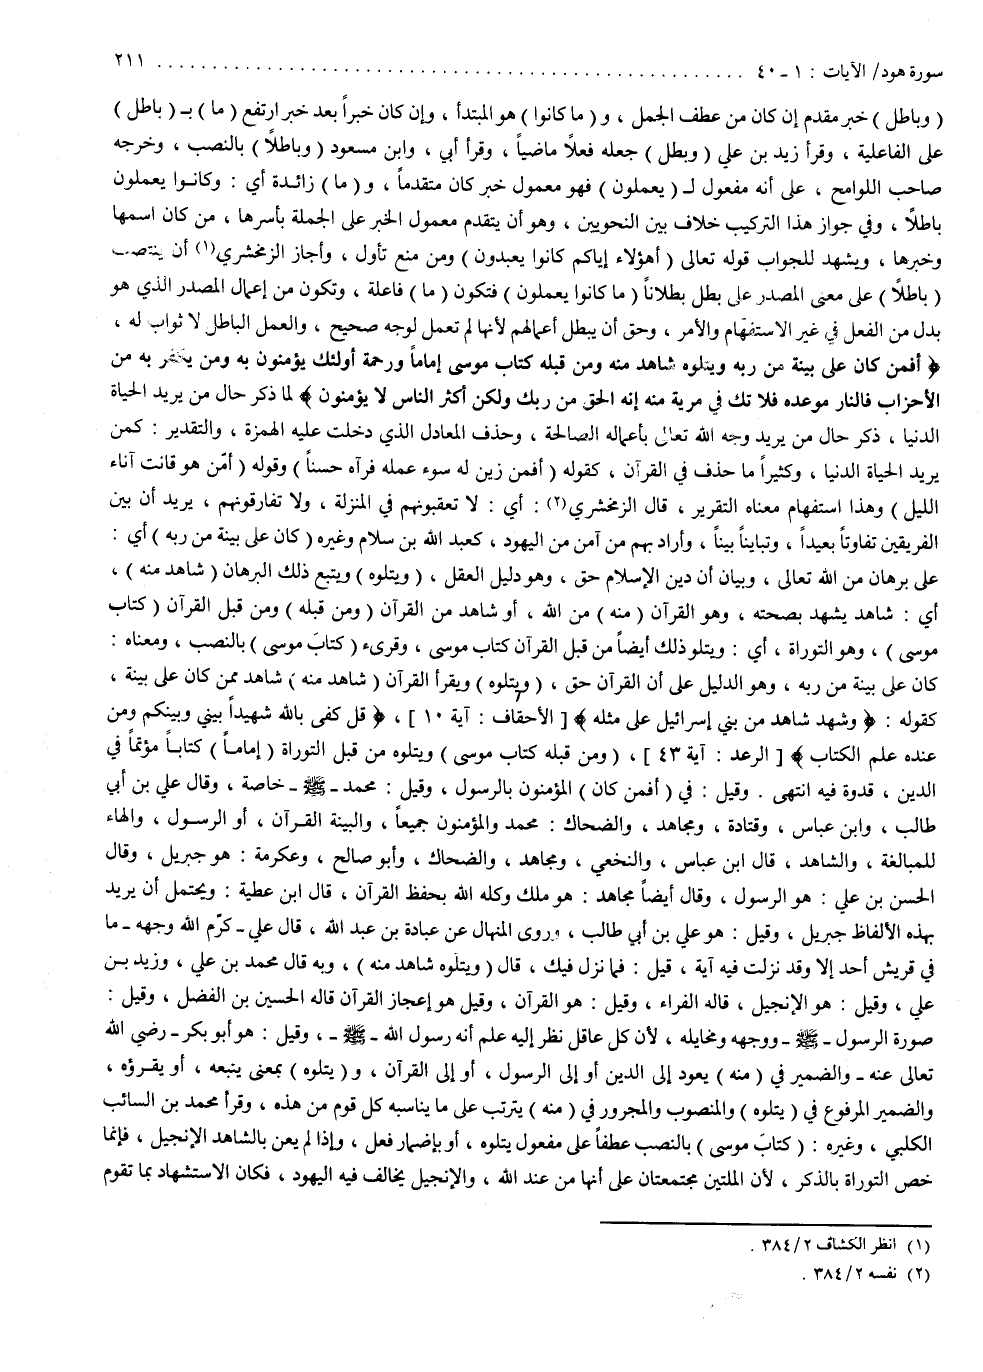 سورة هود/ الآيات : ١ - ٤٠ ........................................................ ٢١١
( وباطل ) خبر مقدم إن كان من عطف الجمل ، و ( ما كانوا ) هو المبتدأ ، وإن كان خبراً بعد خبر ارتفع ( ما ) بـ ( باطل )
على الفاعلية ، وقرأ زيد بن علي ( وبطل ) جعله فعلاً ماضياً ، وقرأ أبي ، وابن مسعود ( وباطلاً ) بالنصب ، وخرجه
صاحب اللوامح ، على أنه مفعول لـ ( يعملون ) فهو معمول خبر كان متقدماً ، و ( ما ) زائدة أي : وكانوا يعملون
باطلاً ، وفي جواز هذا التركيب خلاف بين النحويين ، وهو أن يتقدم معمول الخبر على الجملة بأسرها ، من كان اسمها
وخبرها ، ويشهد للجواب قوله تعالى ( أهؤلاء إياكم كانوا يعبدون ) ومن منع تأول ، وأجاز الزمخشري(١) أن ينتصب
( باطلاً ) على معنى المصدر على بطل بطلاناً ( ما كانوا يعملون ) فتكون ( ما ) فاعلة ، وتكون من إعمال المصدر الذي هو
بدل من الفعل في غير الاستفهام والأمر ، وحق أن يبطل أعمالهم لأنها لم تعمل لوجه صحيح ، والعمل الباطل لا ثواب له ،
﴿ أفمن كان على بينة من ربه ويتلوه شاهد منه ومن قبله كتاب موسى إماماً ورحمة أولئك يؤمنون به ومن يكفر به من
الأحزاب فالنار موعده فلا تك في مرية منه إنه الحق من ربك ولكن أكثر الناس لا يؤمنون ﴾ لما ذكر حال من يريد الحياة
الدنيا ، ذكر حال من يريد وجه الله تعالى بأعماله الصالحة ، وحذف المعادل الذي دخلت عليه الهمزة ، والتقدير : كمن
يريد الحياة الدنيا ، وكثيراً ما حذف في القرآن ، كقوله ( أفمن زين له سوء عمله فرآه حسناً ) وقوله ( أمّن هو قانت آناء
الليل ) وهذا استفهام معناه التقرير ، قال الزمخشري(٢) : أي : لا تعقبونهم في المنزلة ، ولا تفارقونهم ، يريد أن بين
الفريقين تفاوتاً بعيداً ، وتبايناً بيناً ، وأراد بهم من آمن من اليهود ، كعبد الله بن سلام وغيره ( كان على بينة من ربه ) أي :
على برهان من الله تعالى ، وبيان أن دين الإسلام حق ، وهو دليل العقل ، ( ويتلوه ) ويتبع ذلك البرهان ( شاهد منه ) ،
أي : شاهد يشهد بصحته ، وهو القرآن ( منه ) من الله ، أو شاهد من القرآن ( ومن قبله ) ومن قبل القرآن ( كتاب
موسى ) ، وهو التوراة ، أي : ويتلو ذلك أيضاً من قبل القرآن كتاب موسى ، وقرىء ( كتابَ موسى ) بالنصب ، ومعناه :
كان على بينة من ربه ، وهو الدليل على أن القرآن حق ، ( ويتلوه ) ويقرأ القرآن ( شاهد منه ) شاهد ممن كان على بينة ،
كقوله : ﴿ وشهد شاهد من بني إسرائيل على مثله ﴾ [ الأحقاف : آية ١٠ ] ، ﴿ قل كفى بالله شهيداً بيني وبينكم ومن
عنده علم الكتاب ﴾ [ الرعد : آية ٤٣ ] ، ( ومن قبله كتاب موسى ) ويتلوه من قبل التوراة ( إماماً ) كتاباً مؤتماً في
الدين ، قدوة فيه انتهى . وقيل : في ( أفمن كان ) المؤمنون بالرسول ، وقيل : محمد ـ ﷺ ـ خاصة ، وقال علي بن أبي
طالب ، وابن عباس ، وقتادة ، ومجاهد ، والضحاك : محمد والمؤمنون جميعاً ، والبينة القرآن ، أو الرسول ، والهاء
للمبالغة ، والشاهد ، قال ابن عباس ، والنخعي ، ومجاهد ، والضحاك ، وأبو صالح ، وعكرمة : هو جبريل ، وقال
الحسن بن علي : هو الرسول ، وقال أيضاً مجاهد : هو ملك وكله الله بحفظ القرآن ، قال ابن عطية : ويحتمل أن يريد
بهذه الألفاظ جبريل ، وقيل : هو علي بن أبي طالب ، وروى المنهال عن عبادة بن عبد الله ، قال علي ـ كرّم الله وجهه ـ ما
في قريش أحد إلا وقد نزلت فيه آية ، قيل : فما نزل فيك ، قال ( ويتلوه شاهد منه ) ، وبه قال محمد بن علي ، وزيد بن
علي ، وقيل : هو الإنجيل ، قاله الفراء ، وقيل : هو القرآن ، وقيل هو إعجاز القرآن قاله الحسين بن الفضل ، وقيل :
صورة الرسول ـ ﷺ ـ ووجهه ومخايله ، لأن كل عاقل نظر إليه علم أنه رسول الله ـ ﷺ ـ ، وقيل : هو أبو بكر ـ رضي الله
تعالى عنه ـ والضمير في ( منه ) يعود إلى الدين أو إلى الرسول ، أو إلى القرآن ، و ( يتلوه ) بمعنى يتبعه ، أو يقرؤه ،
والضمير المرفوع في ( يتلوه ) والمنصوب والمجرور في ( منه ) يترتب على ما يناسبه كل قوم من هذه ، وقرأ محمد بن السائب
الكلبي ، وغيره : ( كتابَ موسى ) بالنصب عطفاً على مفعول يتلوه ، أو بإضمار فعل ، وإذا لم يعن بالشاهد الإنجيل ، فإنما
خص التوراة بالذكر ، لأن الملتين مجتمعتان على أنها من عند الله ، والإنجيل يخالف فيه اليهود ، فكان الاستشهاد بما تقوم
(١) انظر الكشاف ٢/ ٣٨٤ .
(٢) نفسه ٢/ ٣٨٤ .